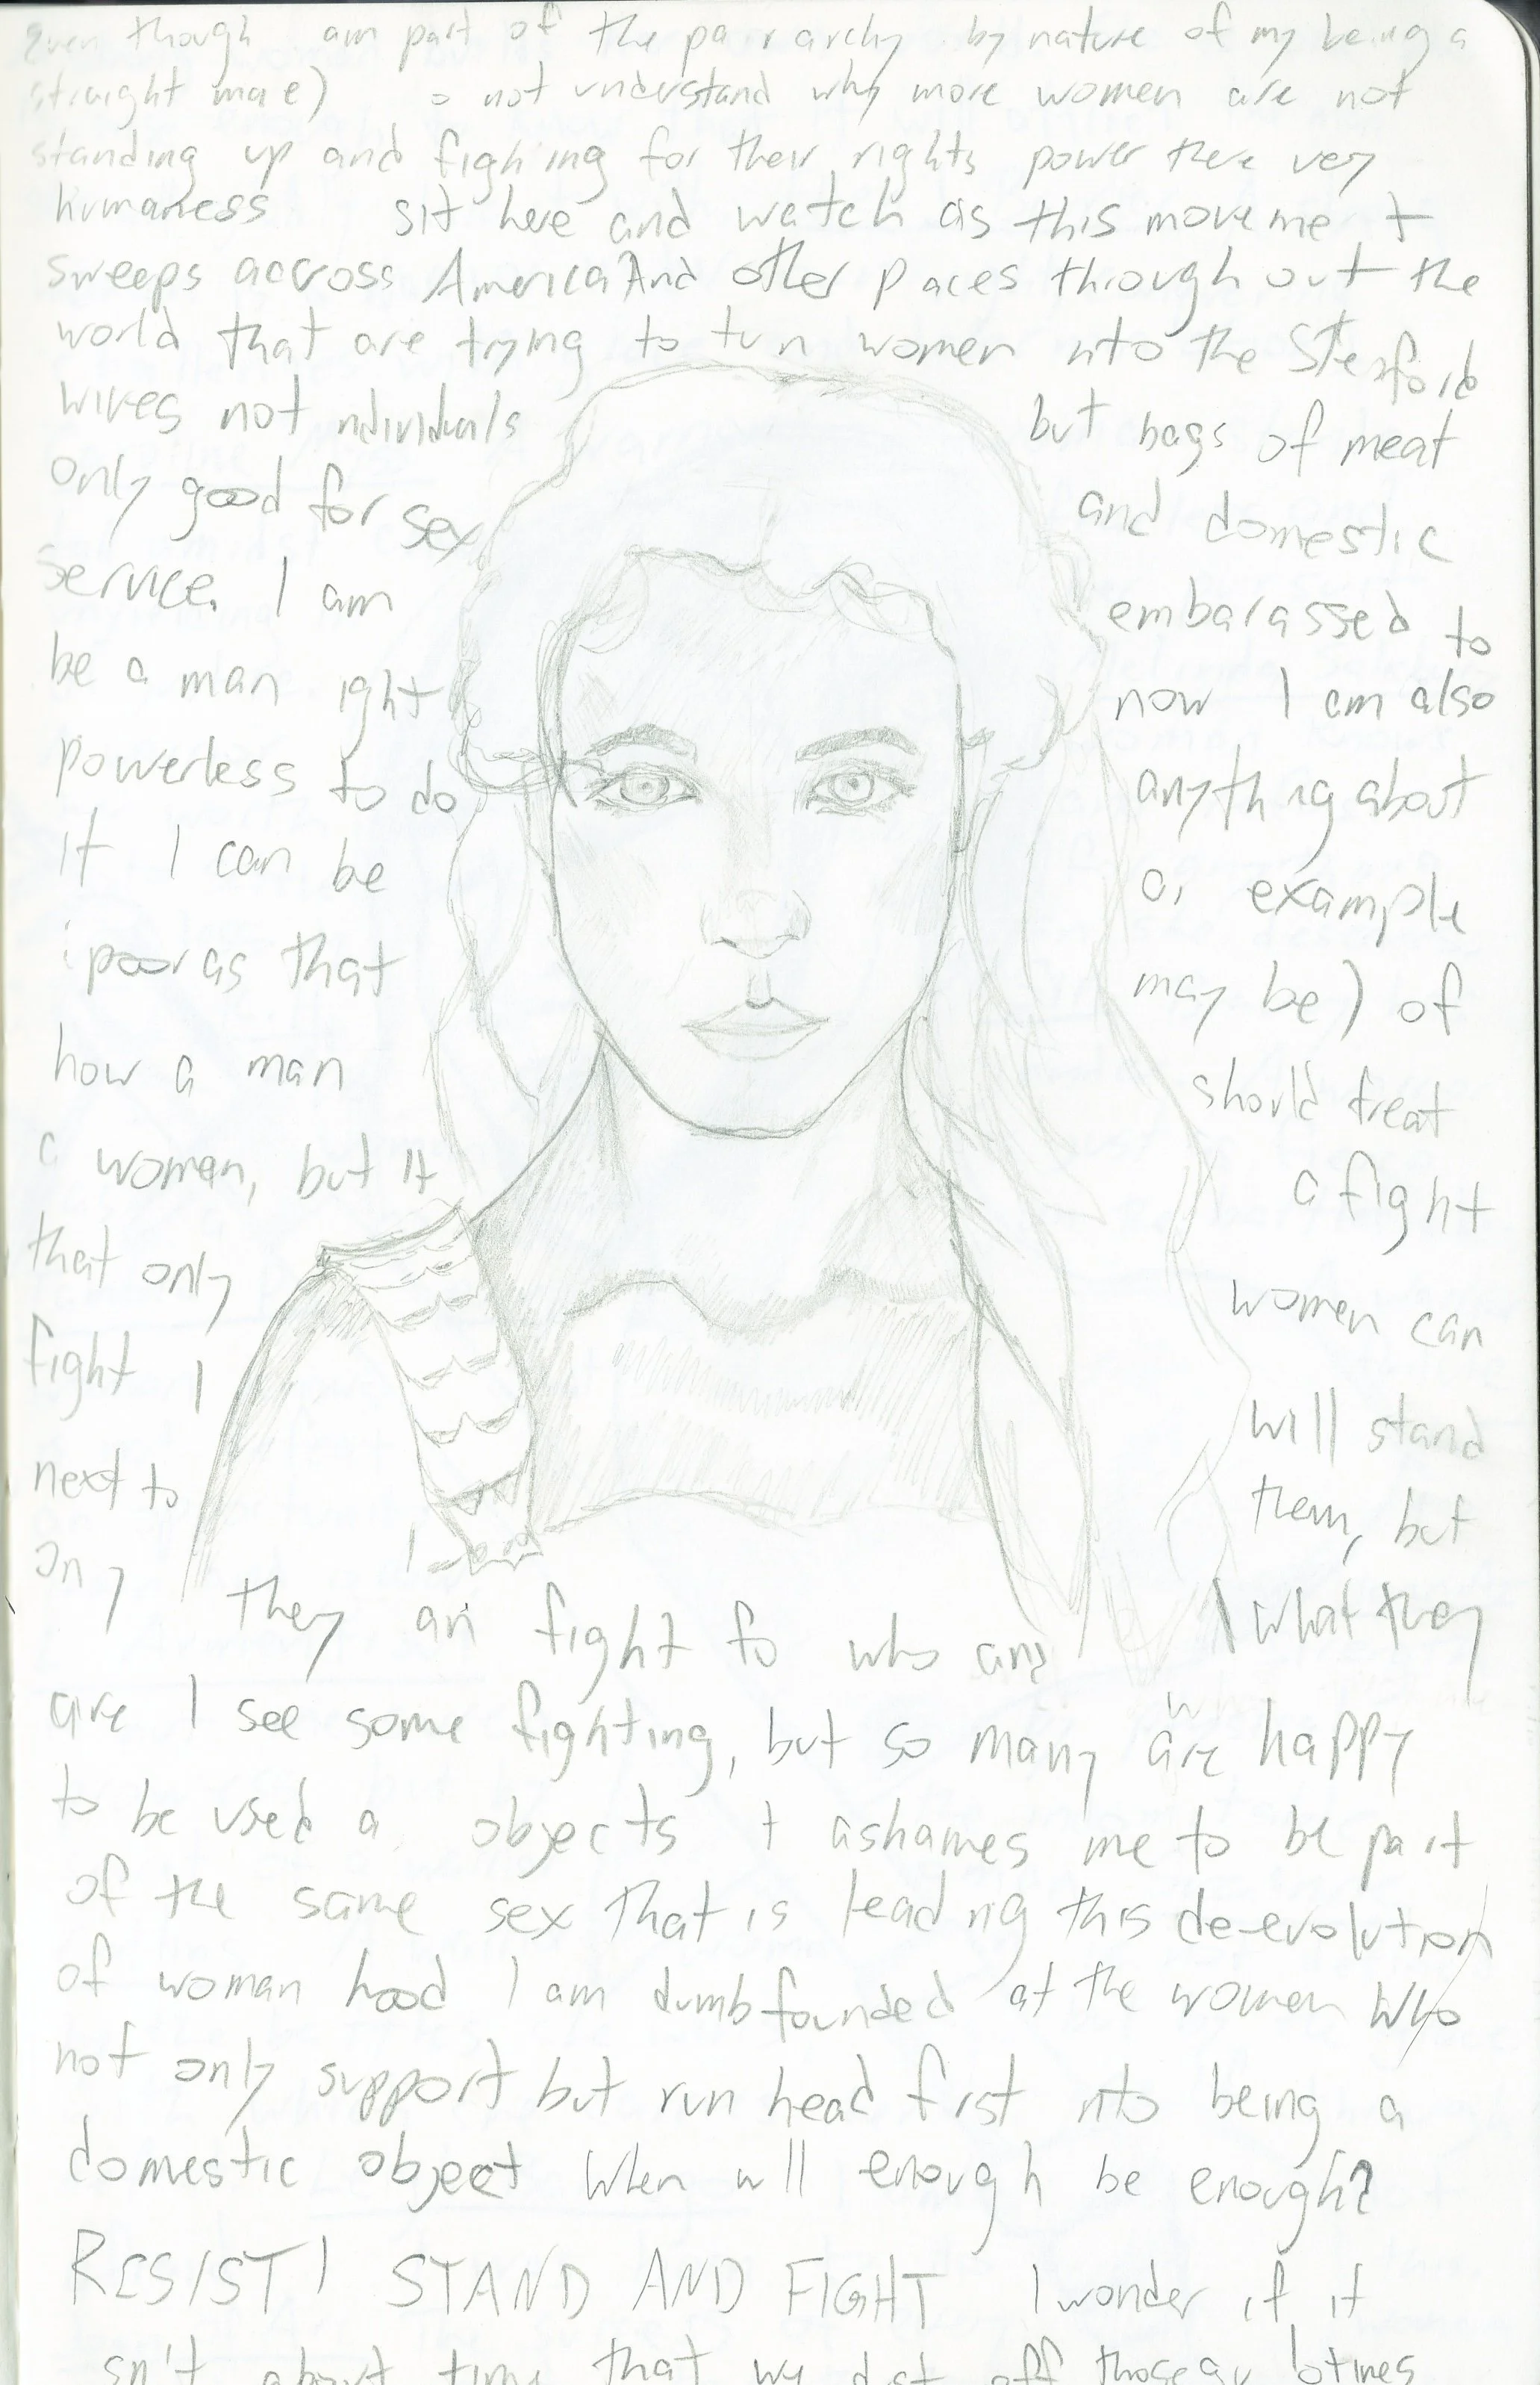 Even though am part of the pa r archy by nature of my being a
straight ma e) o not understand why more women are not
standing up and figh ing for their rights power there very
humaness sit here and watch as this moveme t
sweeps across America And other p aces through out the
world that are trying to tu n women nto the Ste ford
wives not ndividuals but bags of meat
only good for sex and domestic
Service. I am embarassed to
be a man ight now I am also
powerless to do anyth ng about
it I can be a example
(poor as that may be) of
how a man should treat
a woman, but it a fight
that only women can
fight I will stand
next to them, but
only I what they
they an fight fo who and
are I see some fighting, but so many are happy
to be used a objects t ashames me to be part
of the same sex that is lead ng this de-evolution
of woman hood I am dumbfounded at the women who
not only support but run head first nto being a
domestic object When w ll enough be enough?
RESIST! STAND AND FIGHT I wonder if it
sn't about time that we d st off those